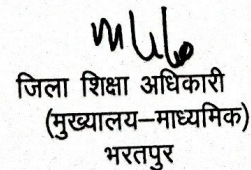 जिला शिक्षा अधिकारी
(मुख्यालय–माध्यमिक)
भरतपुर